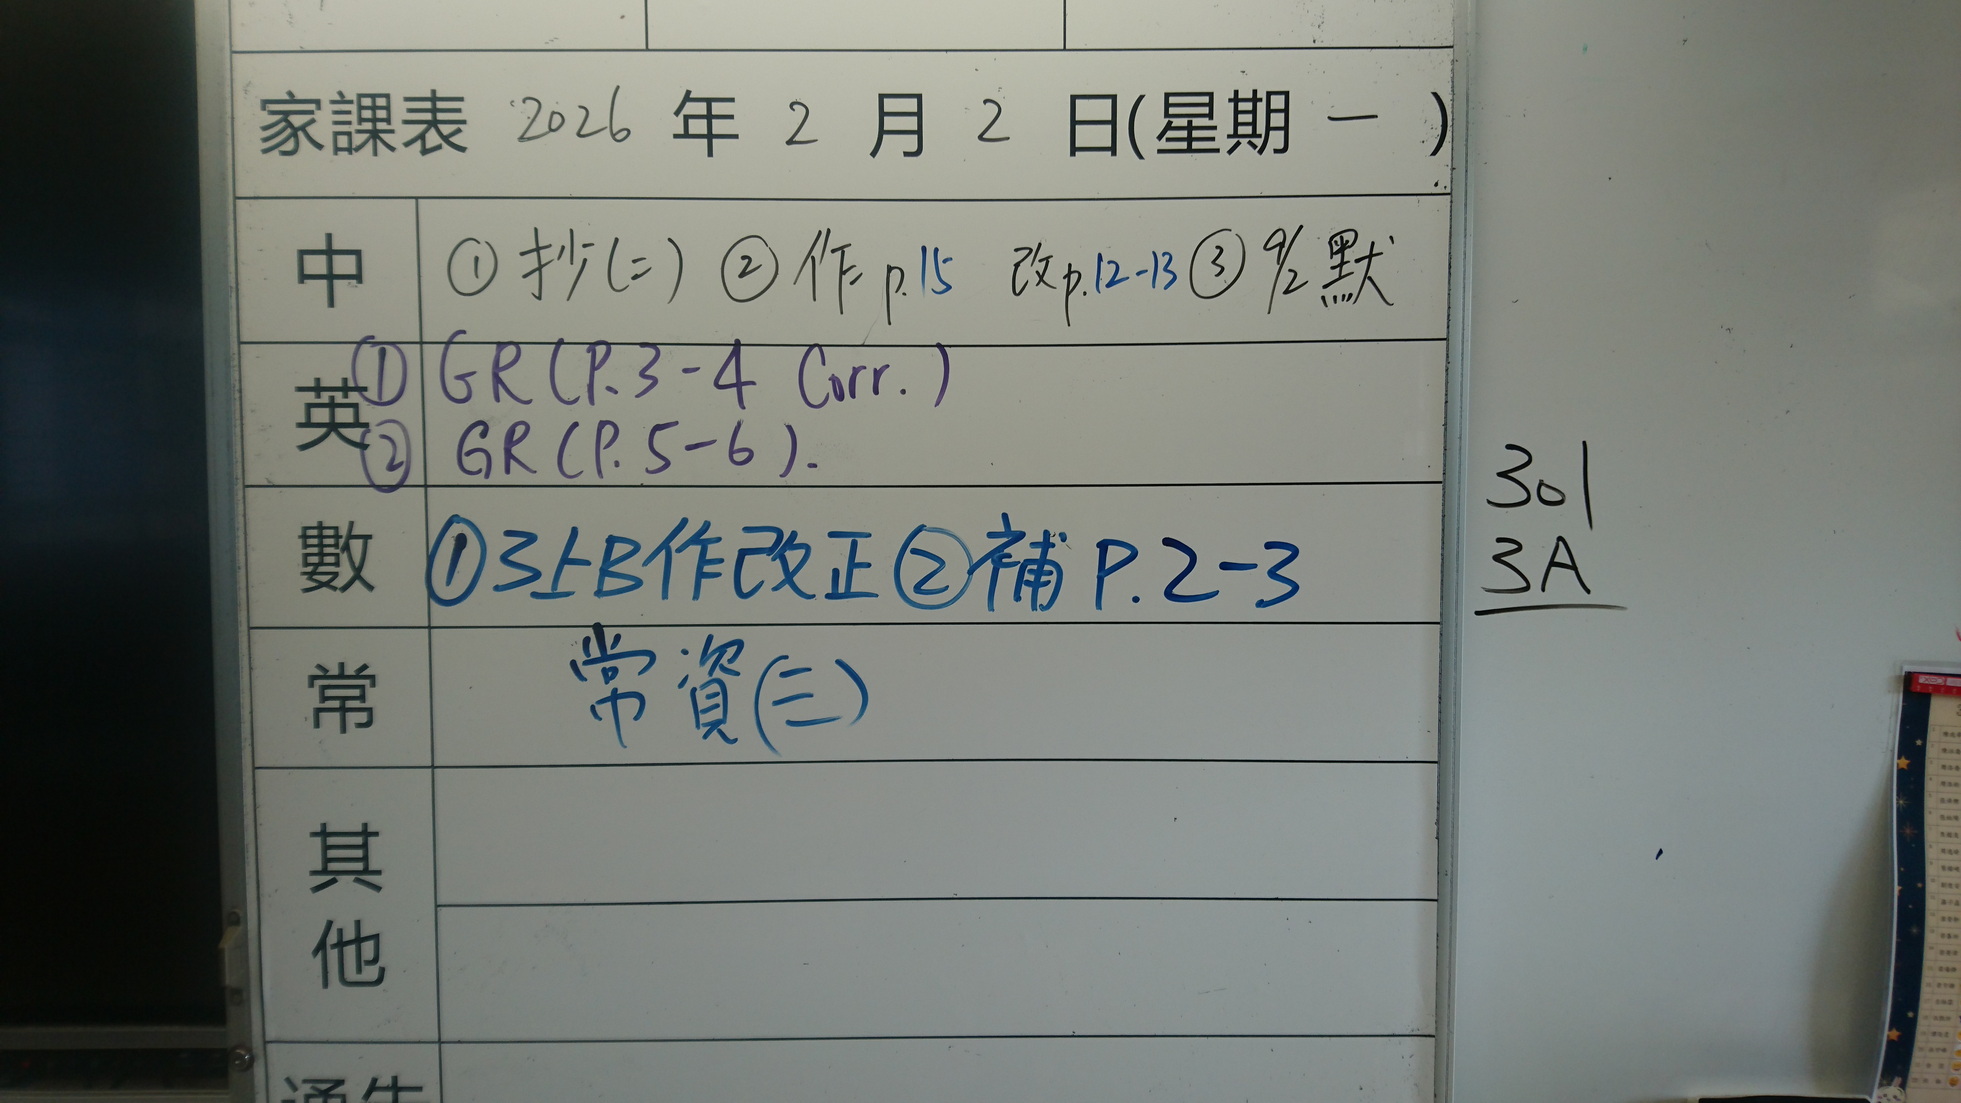 家課表 2026 年 2 月 2 日(星期 一 )
中 ① 抄(二) ② 作 p.15 改p.12-13 ③ 9/2 默
英 ① GR (P.3-4 Corr.)
② GR (P.5-6).
數 ①3上B作改正②補 P.2-3
常 常資(三)
其他
301
3A